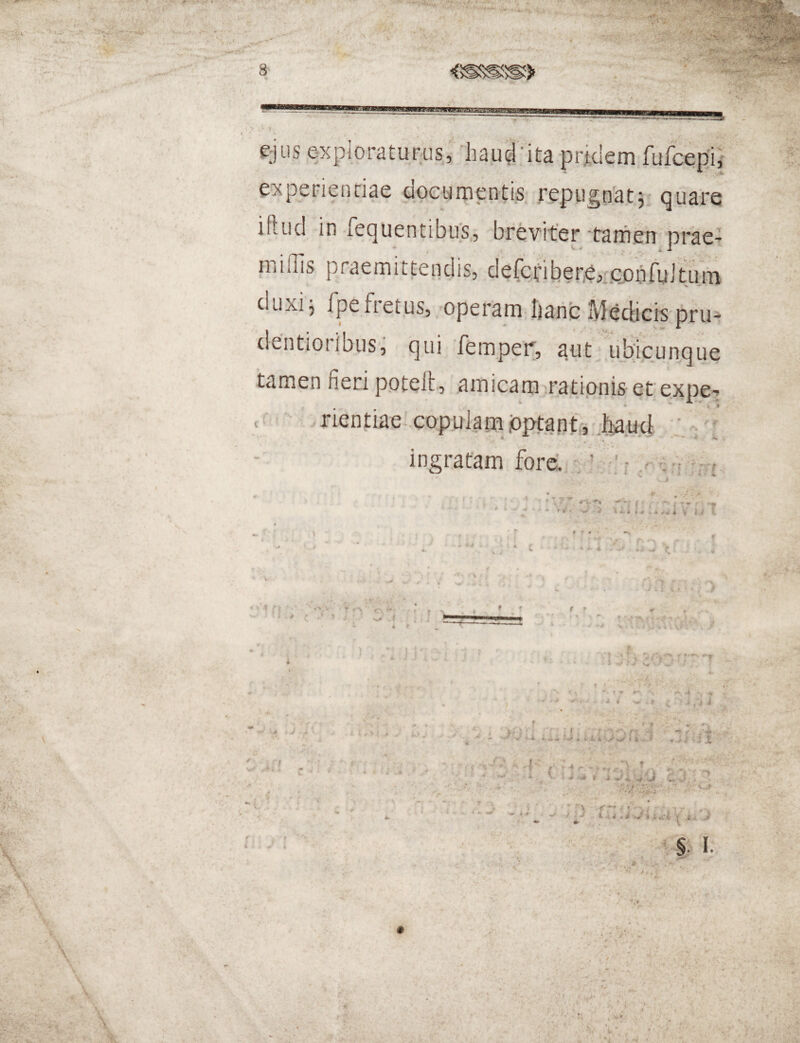 8
ejus exploraturus, haud ita pridem ſuſcepi,
experientiae documentis repugnat; quare
iſtud in ſequentibus, breviter tamen prae-
miſſis praemittendis, deſcribere, conſultum
duxi; ſpe fretus, operam hanc Medicis pru-
dentioribus, qui ſemper, aut ubicunque
tamen fieri poteſt, amicam rationis et expe-
rientiae copulam optant, haud
ingratam fore.
§. I.